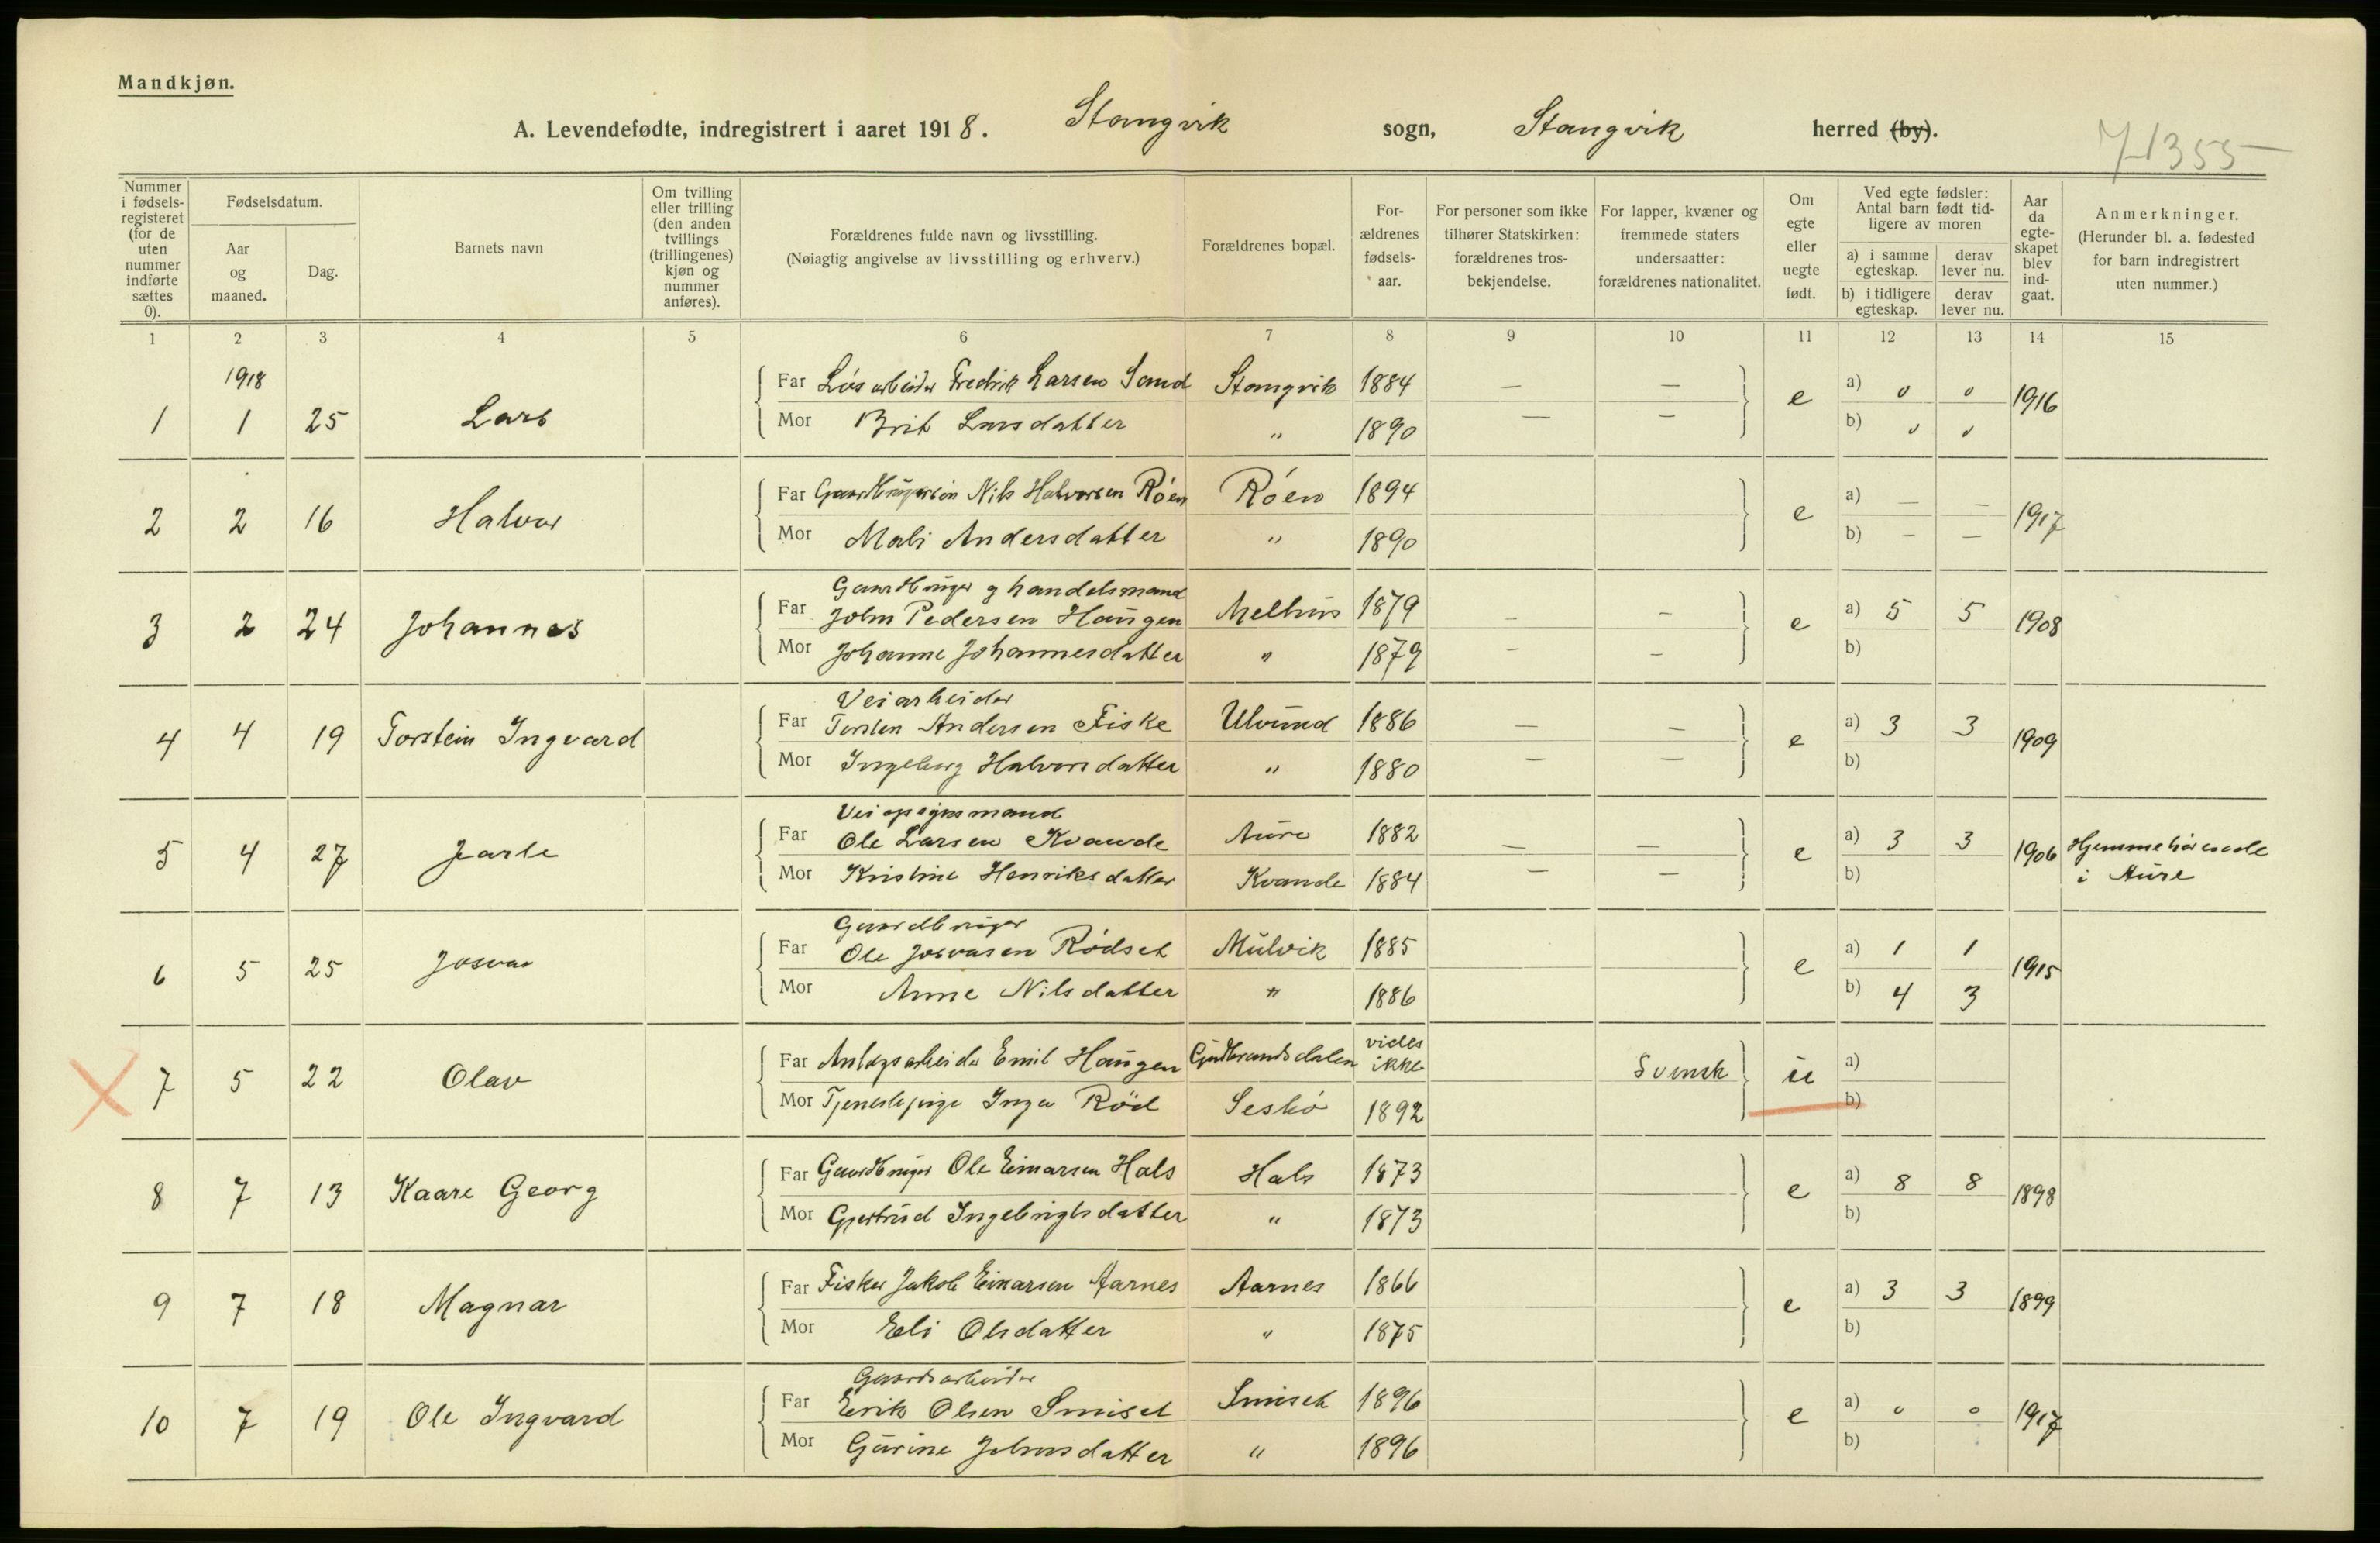 Mandkjøn.
A. Levendefødte, indregistrert i aaret 1918. Stangvik sogn, Stangvik herred (by).
71355
Nummer i fødsels-registeret (for de uten nummer indførte sættes 0).
Fødselsdatum.
Aar og maaned.
Dag.
Barnets navn
Om tvilling eller trilling (den anden tvillings (trillingenes) kjøn og nummer anføres).
Forældrenes fulde navn og livsstilling.
(Nøiagtig angivelse av livsstilling og erhverv.)
Forældrenes bopæl.
For-ældrenes fødsels-aar.
For personer som ikke tilhører Statskirken: forældrenes tros-bekjendelse.
For lapper, kvæner og fremmede staters undersaatter: forældrenes nationalitet.
Om egte eller uegte født.
Ved egte fødsler: Antal barn født tid-ligere av moren
a) i samme egteskap. derav lever nu.
b) i tidligere egteskap. derav lever nu.
Aar da egte-skapet blev ind-gaat.
Anmerkninger.
(Herunder bl. a. fødested for barn indregistrert uten nummer.)
1 2 3 4 5 6 7 8 9 10 11 12 13 14 15
1918
Far Løsarbeider Fredrik Larsen Sand Stangvik 1884 — — a) 0 0
1 1 25 Lars e 1916
Mor Brit Larsdatter " 1890 — — b) 0 0
Far Gaardbrugersøn Nils Halvorsen Røen Røen 1894 a) — —
2 2 16 Halvor e 1917
Mor Mali Andersdatter " 1890 b) — —
Gaardbruger og handelsmand
Far John Pedersen Haugen Melhus 1879 — — a) 5 5
3 2 24 Johannes e 1908
Mor Johanne Johannesdatter " 1879 — — b)
Veiarbeider
Far Torsten Andersen Fiske Ulvund 1886 — — a) 3 3
4 4 19 Torstein Ingvard e 1909
Mor Ingeborg Halvorsdatter " 1880 — — b)
Veiopsynsmand
Far Ole Larsen Kvande Aure 1882 — — a) 3 3
5 4 27 Jarle e 1906 Hjemmehørende
Mor Kristine Henriksdatter Kvande 1884 — — b) i Aure
Gaardbruger
Far Ole Josvasen Rødset Mulvik 1885 a) 1 1
6 5 25 Josvar e 1915
Mor Anne Nilsdatter " 1886 b) 4 3
Far Anlægsarbeider Emil Haugen Gudbrandsdalen vides ikke Svensk a)
7 5 22 Olav u
Mor Tjenestepige Inga Röd 1892 b)
Far Gaardbruger Ole Einarsen Hals Hals 1873 a) 8 8
8 7 13 Kaare Georg e 1898
Mor Gjertrud Ingebrigtsdatter " 1873 b)
Far Fisker Jakob Einarsen Aarnes Aarnes 1866 a) 3 3
9 7 18 Magnar e 1899
Mor Eli Olsdatter " 1875 b)
Gaardsarbeider
Far Erik Olsen Smiset Smiset 1896 a) 0 0
10 7 19 Ole Ingvard e 1917
Mor Gurine Johnsdatter " 1896 b)